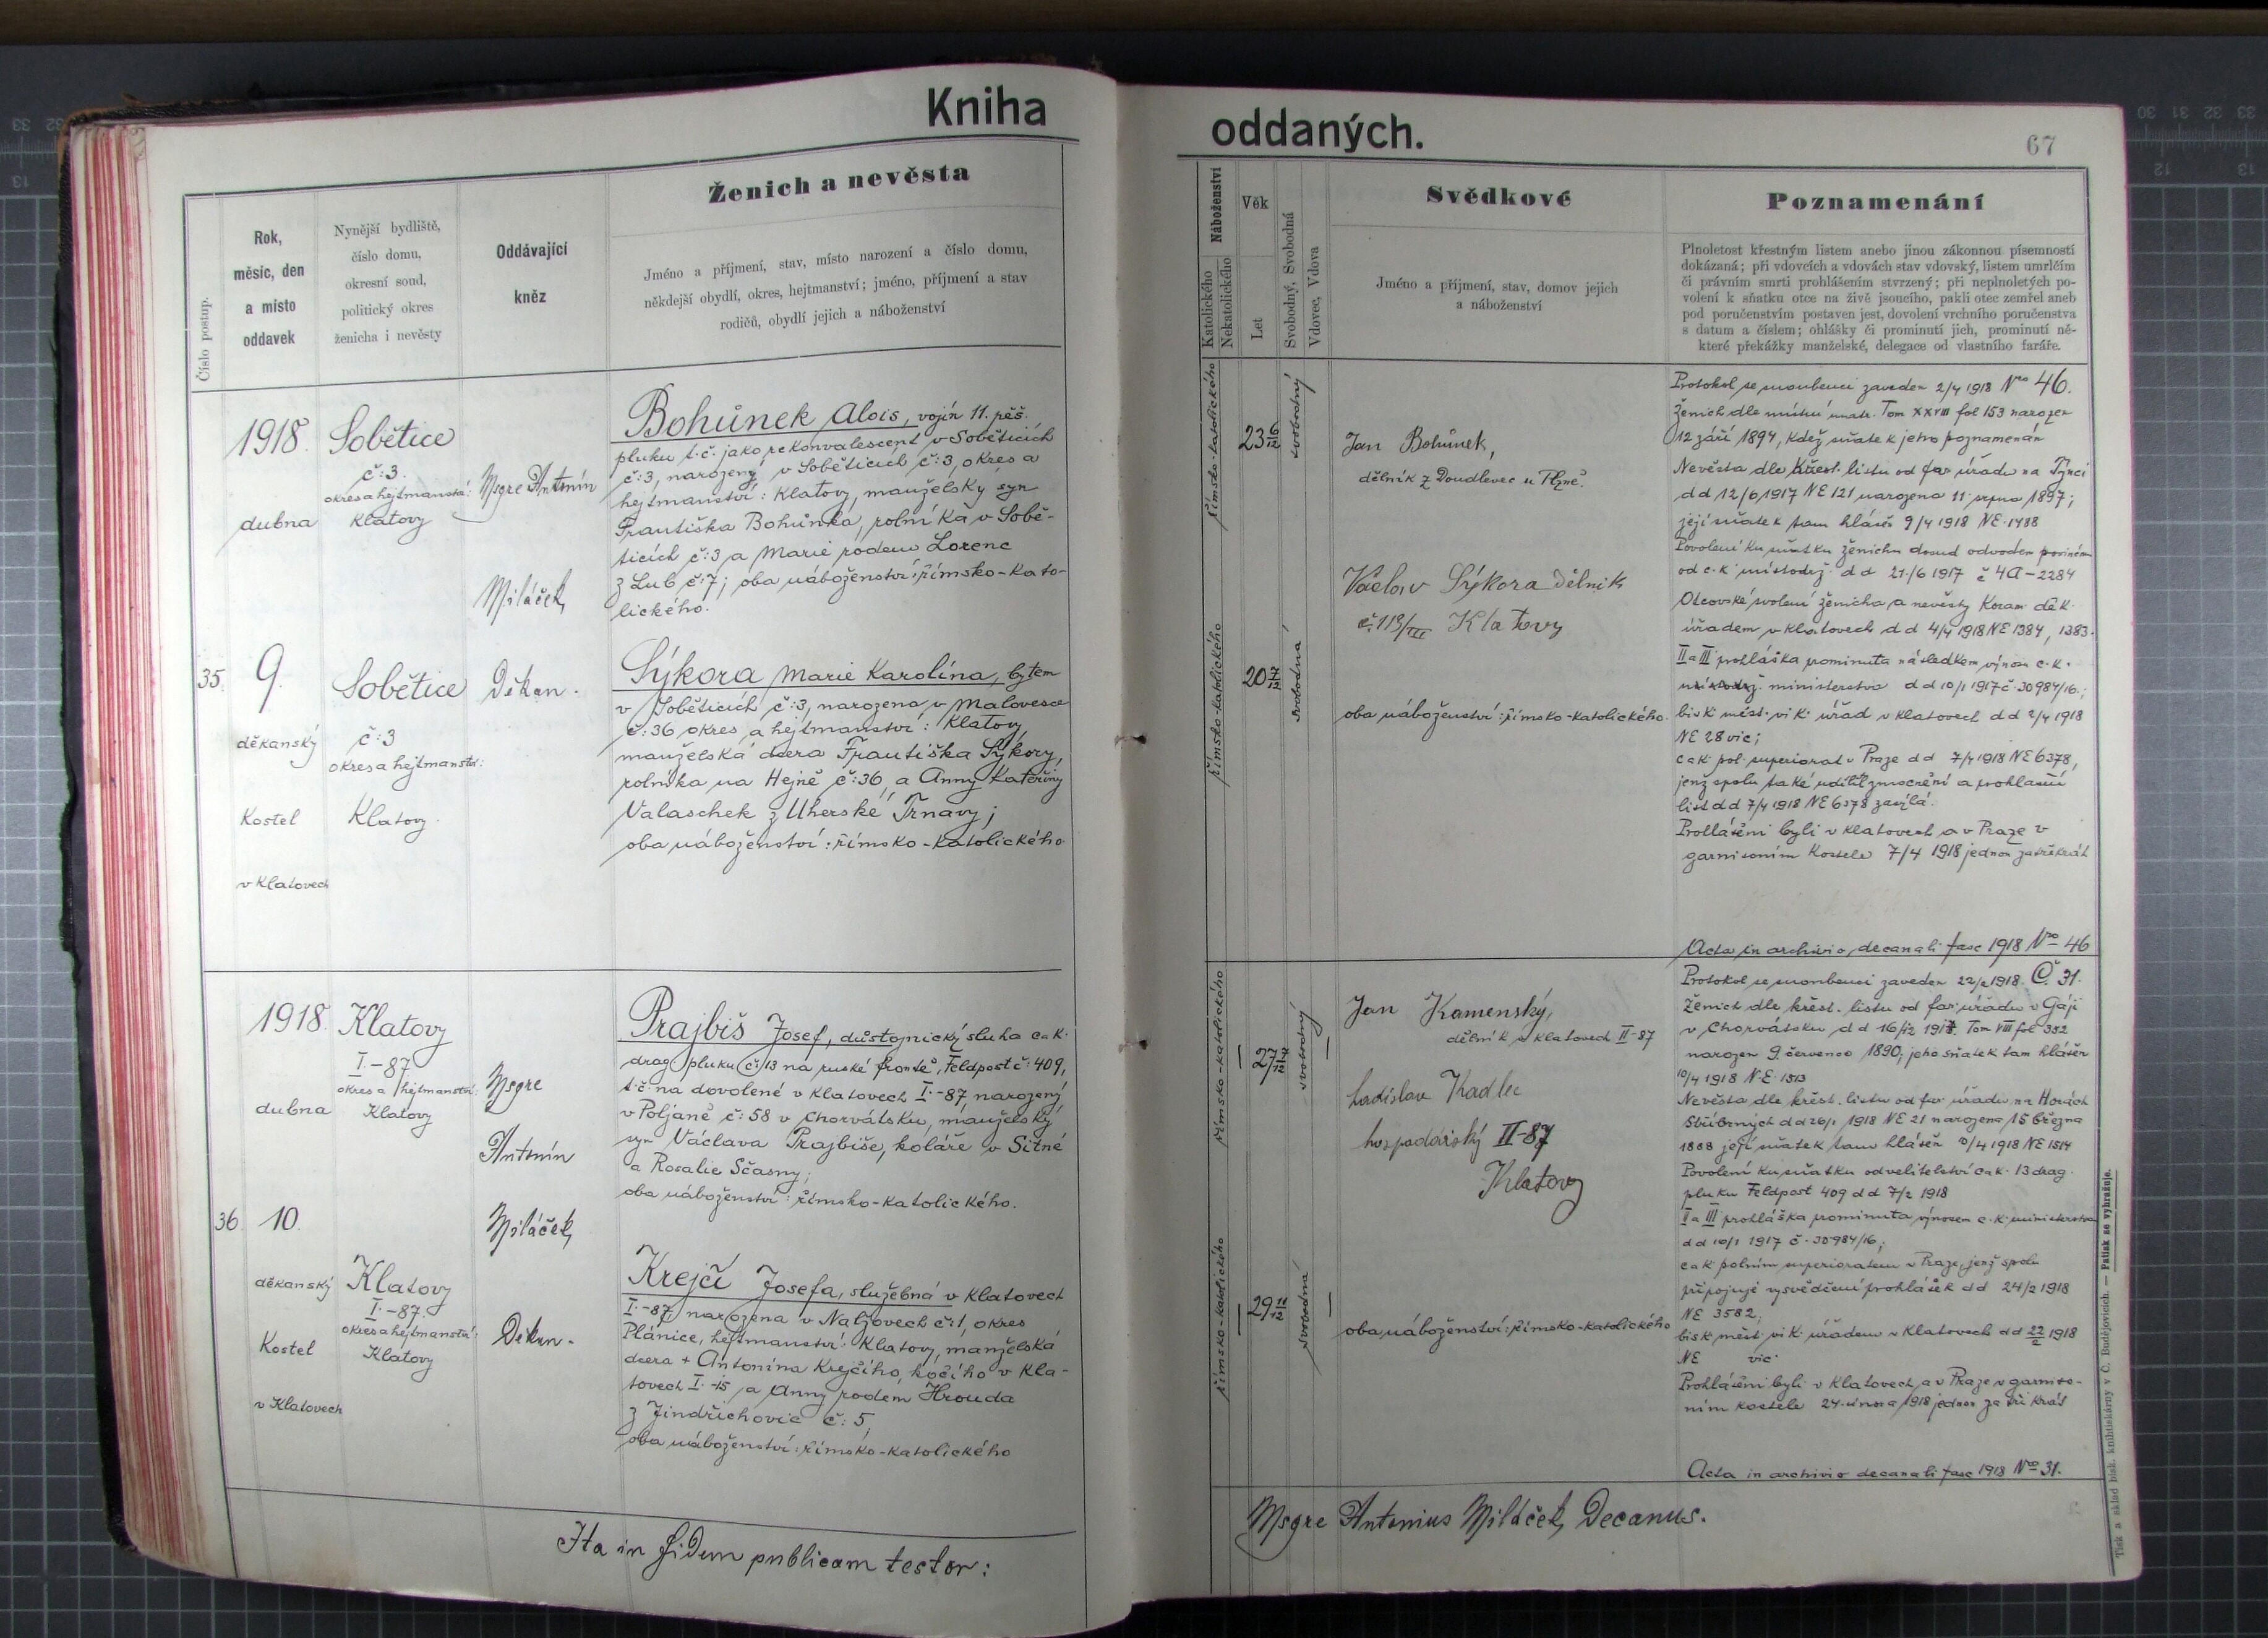 Kniha
oddaných.
67
Číslo postup.
Rok,
měsíc, den
a místo
oddavek
Nynější bydliště,
číslo domu,
okresní soud,
politický okres
ženicha i nevěsty
Oddávající
kněz
Ženich a nevěsta
Jméno a příjmení, stav, místo narození a číslo domu,
někdejší obydlí, okres, hejtmanství; jméno, příjmení a stav
rodičů, obydlí jejich a náboženství
Náboženství
Katolického
Nekatolického
Věk
Let
Svobodný, Svobodná
Vdovec, Vdova
Svědkové
Jméno a příjmení, stav, domov jejich
a náboženství
Poznamenání
Plnoletost křestným listem anebo jinou zákonnou písemností
dokázaná; při vdovcích a vdovách stav vdovský, listem umrlčím
či právním smrti prohlášením stvrzený; při neplnoletých po-
volení k sňatku otce na živě jsoucího, pakli otec zemřel aneb
pod poručenstvím postaven jest, dovolení vrchního poručenstva
s datum a číslem; ohlášky či prominutí jich, prominutí ně-
které překážky manželské, delegace od vlastního faráře.
35.
1918.
dubna
9.
děkanský
Kostel
v Klatovech
Sobětice
č:3.
okres a hejtmanství:
Klatovy
Sobětice
č:3
okres a hejtmanství:
Klatovy.
Msgre Antonín
Miláček,
Děkan.
Bohůnek Alois, vojín 11. pěš.
pluku t.č. jako rekonvalescent v Soběticích
č:3, narozený v Soběticích č:3, okres a
hejtmanství: Klatovy, manželský syn
Františka Bohůnka, rolníka v Sobě-
ticích č:3 a Marie rodem Lorenc
z Lub č:7; oba náboženství: římsko-kato-
lického.
Sýkora Marie Karolína, bytem
v Soběticích č:3, narozena v Malovesce
č:36 okres a hejtmanství: Klatovy
manželská dcera Františka Sýkory,
rolníka na Hejně č:36, a Anny Kateřiny
Valaschek z Uherské Trnavy;
oba náboženství: římsko-katolického
římsko-katolického
23 6/12
svobodný
římsko-katolického
20 7/12
svobodná
Jan Bohůnek,
dělník z Doudlevec u Plzně.
Václav Sýkora dělník
č. 113/III Klatovy
oba náboženství: římsko-katolického.
Protokol se snoubenci zaveden 2/4 1918 Nro 46.
Ženich dle místní matr. Tom XXVIII fol 153 narozen
12 září 1894, kdež sňatek jeho poznamenán
Nevěsta dle křest. listu od far úřadu na Týnci
dd 12/6 1917 NE 121 narozena 11 srpna 1897;
její sňatek tam hlášen 9/4 1918 NE 1488
Povolení ku sňatku ženichu dosud odvodem povinném
od c.k místodrž. dd 21/6 1917 č 4a-2284
Otcovské svolení ženicha a nevěsty Koram děk.
úřadem v Klatovech dd 4/4 1918 NE 1384, 1383.
II a III prohláška prominuta následkem výnosu c.k.
místodrž. ministerstva dd 10/1 1917 č. 30984/16.;
bisk měst. vik úřad v Klatovech dd 2/4 1918
NE 28 vic;
c a k pol. superiorat v Praze dd 7/4 1918 NE 6378,
jenž spolu také udělil zmocnění a prohlašní
list dd 7/4 1918 NE 6378 zasýlá.
Prohlášeni byli v Klatovech a v Praze v
garnisoním kostele 7/4 1918 jednou za třikrát
Acta in archivio decanali fasc 1918 Nro 46
36
1918.
dubna
10.
děkanský
Kostel
v Klatovech
Klatovy
I.-87
okres a hejtmanství:
Klatovy
Klatovy
I.-87.
okres a hejtmanství:
Klatovy
Msgre
Antonín
Miláček,
Děkan.
Prajbiš Josef, důstojnický sluha c a k.
drag pluku č:13 na ruské frontě, Feldpost č:409,
t.č. na dovolené v Klatovech I.-87 narozený
v Poljaně č:58 v Chorvátsku, manželský
syn Václava Prajbiše, koláře v Sitné
a Rosalie Sčasny;
oba náboženství: římsko-katolického.
Krejčí Josefa, služebná v Klatovech
I.-87, narozena v Nalžovech č:1, okres
Plánice, hejtmanství: Klatovy, manželská
dcera + Antonína Krejčího, kočího v Kla-
tovech I.-15 a Anny rodem Hrouda
z Jindřichovic č:5,
oba náboženství: římsko-katolického
římsko-katolického
svobodný
římsko-katolického
29 11/12
svobodná
Jan Kamenský,
dělník v Klatovech II-87
Ladislav Kadlec
hospodářský II-87
Klatovy
oba náboženství: římsko-katolického
Protokol se snoubenci zaveden 22/2 1918. Č. 31.
Ženich dle křest. listu od far úřadu v Gáji
v Chorvátsku dd 16/12 Tom VIII fol 352
narozen 9. července 1890, jeho sňatek tam hlášen
10/4 1918 N.E. 1513
Nevěsta dle křest. listu od far úřadu na Horách
Stříbrných dd 26/1 1918 NE 21 narozena 15 března
1888 její sňatek tam hlášen 10/4 1918 NE 1514
Povolení ku sňatku od velitelství c a k. 13 drag.
pluku Feldpost 409 dd 7/2 1918
II a III prohláška prominuta výnosem c.k. ministerstva
dd 10/1 1917 č. 30984/16;
c a k polním superioratem v Praze, jenž spolu
připojuje vysvědčení prohlášek dd 24/2 1918
NE 3582;
bisk měst. vik. úřadem v Klatovech dd 22/2 1918
NE vic.
Prohlášeni byli v Klatovech a v Praze v garniso-
ním kostele 24. února 1918 jednou za tři krát
Acta in archivio decanali fasc 1918 Nro 31.
Ita in fidem publicam testor:
Msgre Antonius Miláček, Decanus.
Tisk a sklad bisk. knihtiskárny v Č. Budějovicích. — Patisk se vyhražuje.